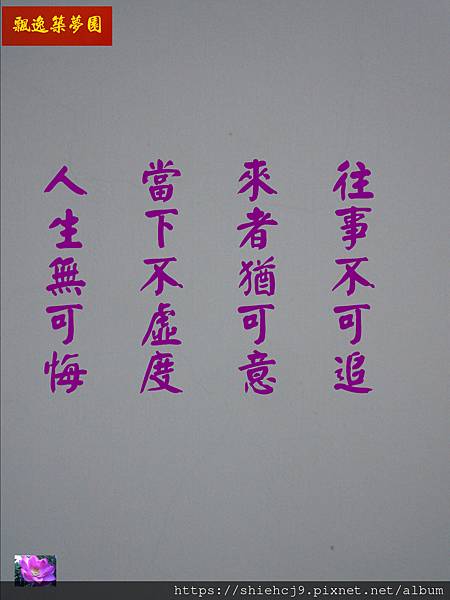 飄逸築夢園
往事不可追
來者猶可意
當下不虛度
人生無可悔
https://shiehcj9.pixnet.net/album